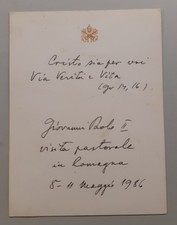 Cristo sia per voi
Via Verità e Vita
(Gv 14, 16)
Giovanni Paolo II
visita pastorale
in Romagna
8-11 maggio 1986